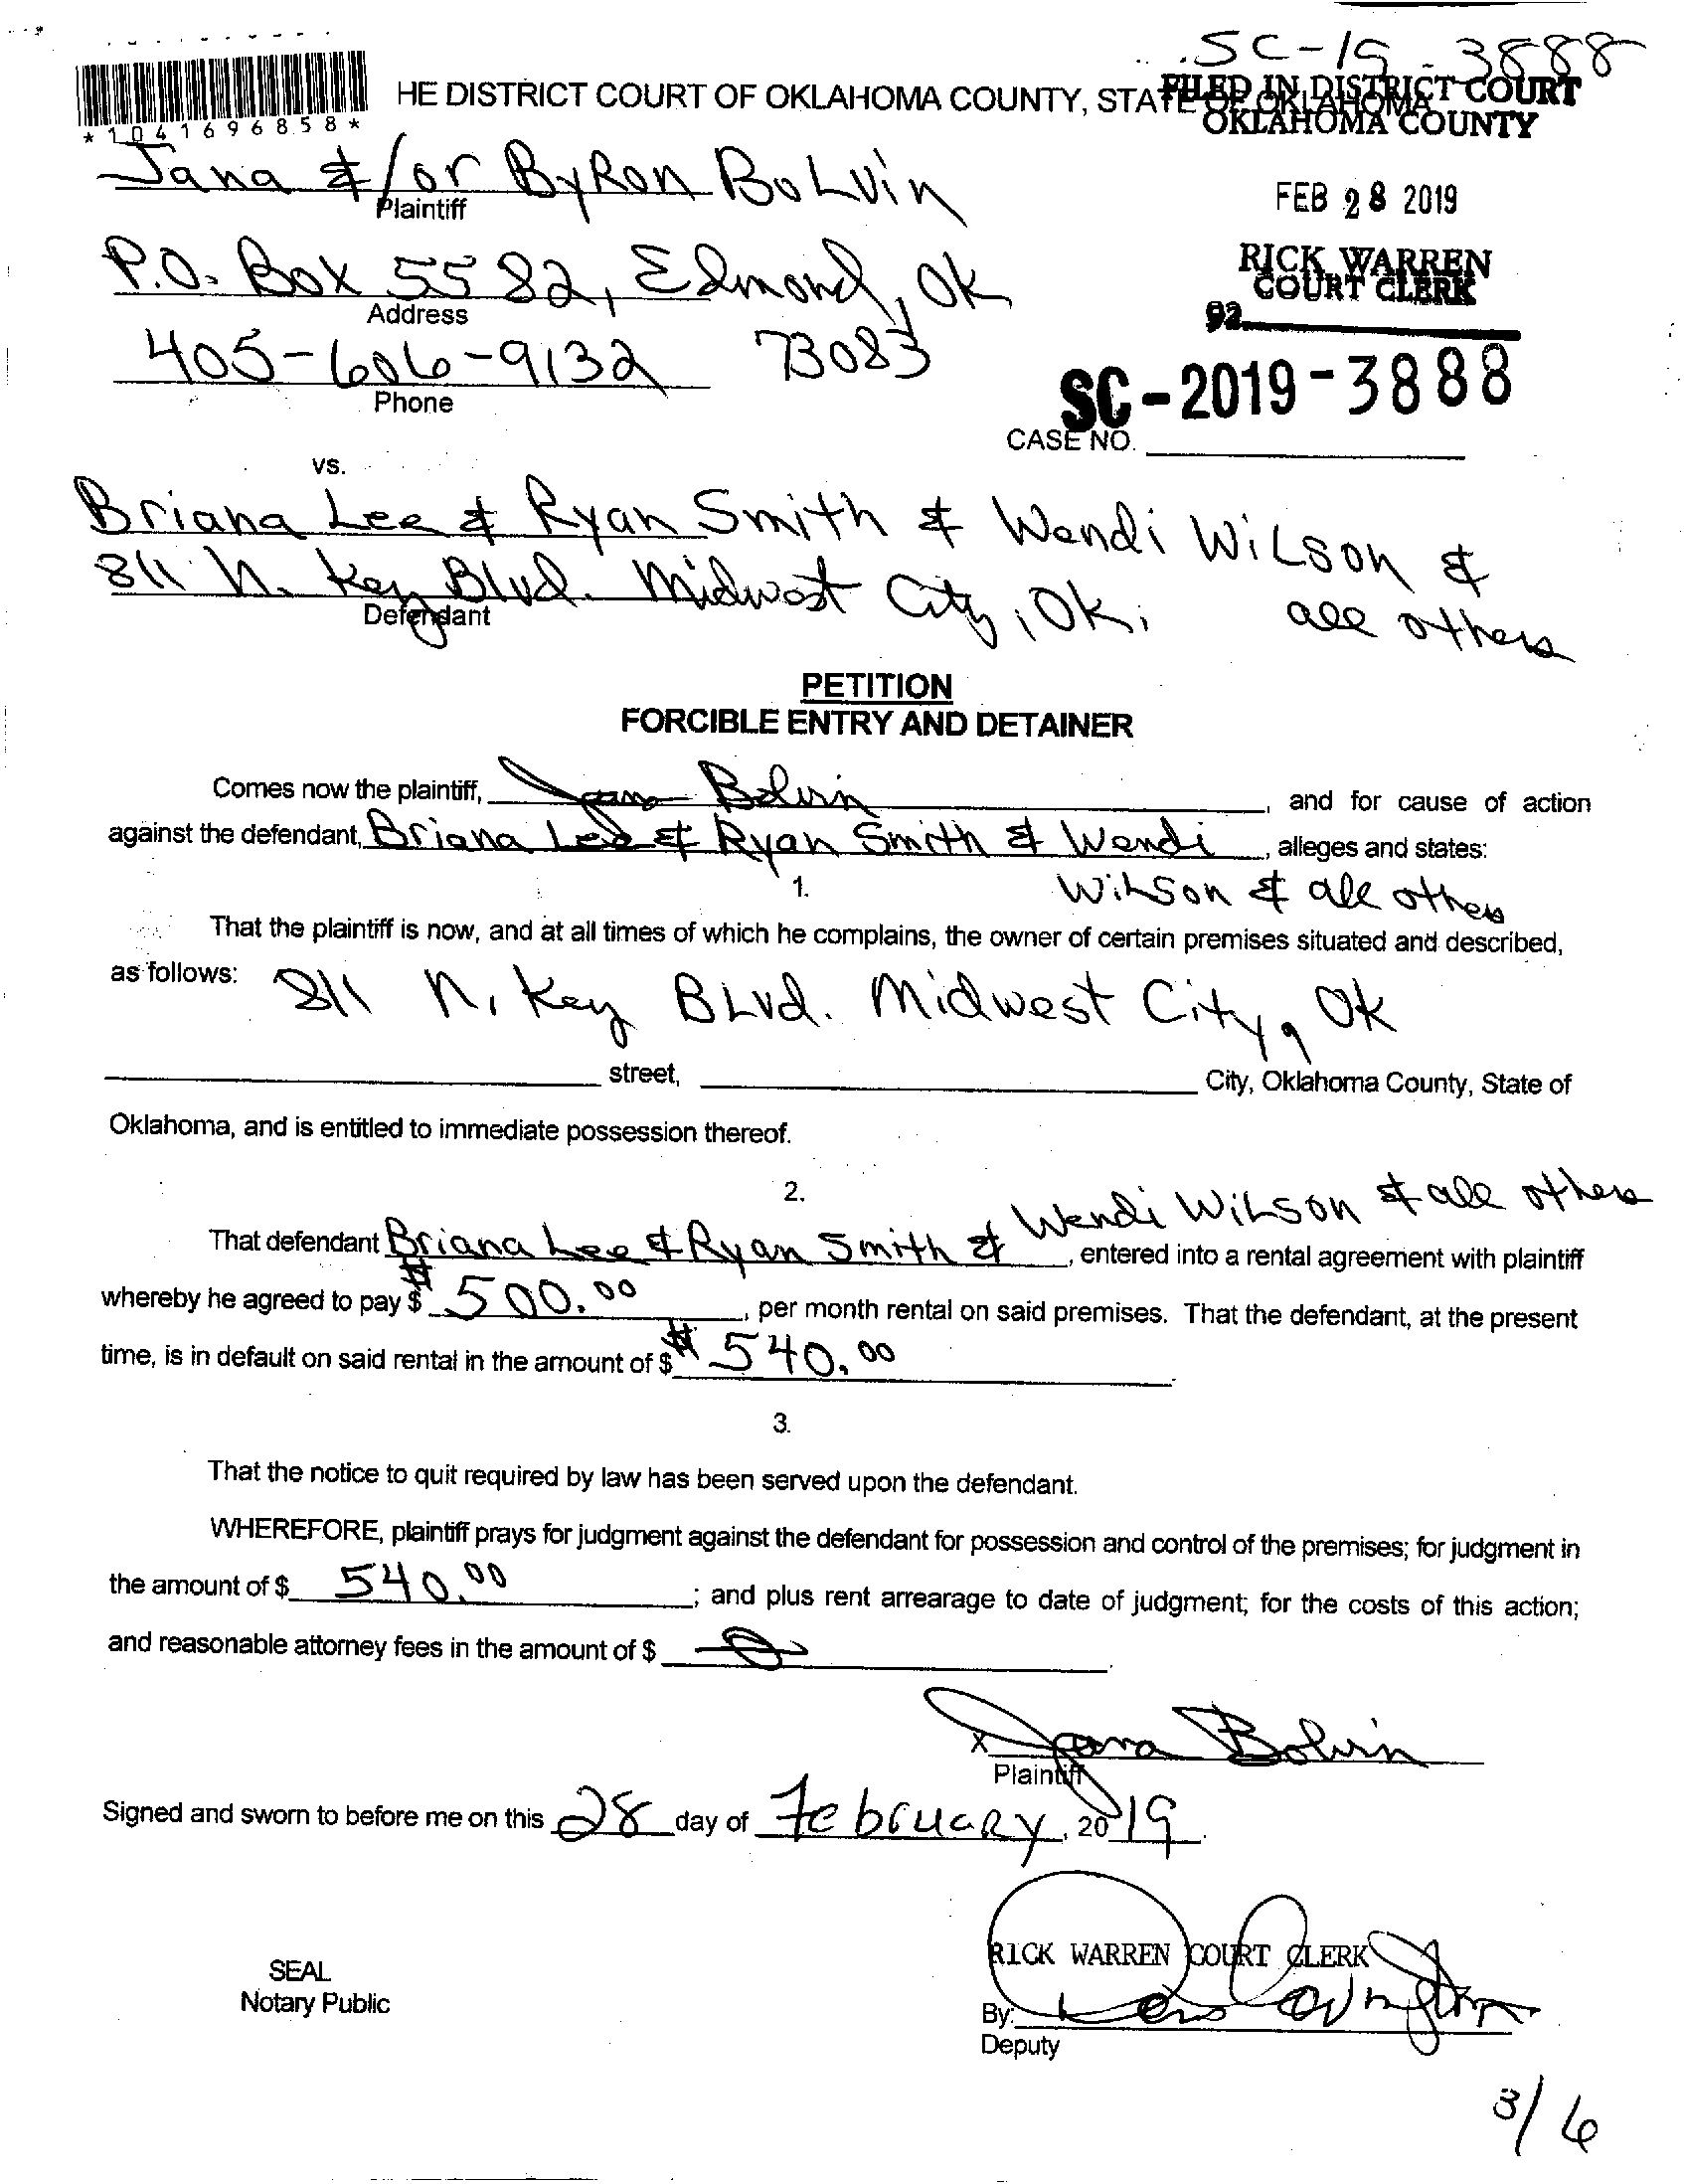 SC-19-3888
HE DISTRICT COURT OF OKLAHOMA COUNTY, STATE OF OKLAHOMA
FILED IN DISTRICT COURT
OKLAHOMA COUNTY
*1041696858*
Jana &/or Byron Bolvin
Plaintiff
FEB 28 2019
P.O. Box 5582, Edmond, OK
Address
RICK WARREN
COURT CLERK
92
405-606-9132 73083
Phone
SC-2019-3888
CASE NO.
vs.
Briana Lee & Ryan Smith & Wendi Wilson &
811 N. Key Blvd. Midwest City, OK. all others
Defendant
PETITION
FORCIBLE ENTRY AND DETAINER
Comes now the plaintiff, Jana Bolvin, and for cause of action
against the defendant, Briana Lee & Ryan Smith & Wendi, alleges and states:
1. Wilson & all others
That the plaintiff is now, and at all times of which he complains, the owner of certain premises situated and described,
as follows: 811 N. Key Blvd. Midwest City, OK
street, City, Oklahoma County, State of
Oklahoma, and is entitled to immediate possession thereof.
2.
That defendant Briana Lee & Ryan Smith & Wendi Wilson & all others, entered into a rental agreement with plaintiff
whereby he agreed to pay $ $500.00, per month rental on said premises. That the defendant, at the present
time, is in default on said rental in the amount of $ $540.00
3.
That the notice to quit required by law has been served upon the defendant.
WHEREFORE, plaintiff prays for judgment against the defendant for possession and control of the premises; for judgment in
the amount of $ 540.00; and plus rent arrearage to date of judgment; for the costs of this action;
and reasonable attorney fees in the amount of $
X Jana Bolvin
Plaintiff
Signed and sworn to before me on this 28 day of February, 2019.
RICK WARREN COURT CLERK
SEAL
Notary Public
By:
Deputy
3/6